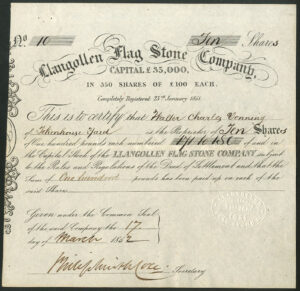 No 10 Ten Shares
Llangollen Flag Stone Company,
CAPITAL £35,000,
IN 350 SHARES OF £100 EACH.
Completely Registered 23rd January 1851
This is to certify that Walter Charles Venning
of Tokenhouse Yard is the Proprietor of Ten Shares
of One hundred pounds each numbered to of and in
the Capital Stock of the LLANGOLLEN FLAG STONE COMPANY subject
to the Rules and Regulations of the Deed of Settlement and that the
Sum of One hundred pounds has been paid up on each of the
said Shares
Given under the Common Seal
of the said Company the 17
day of March 1862
Secretary